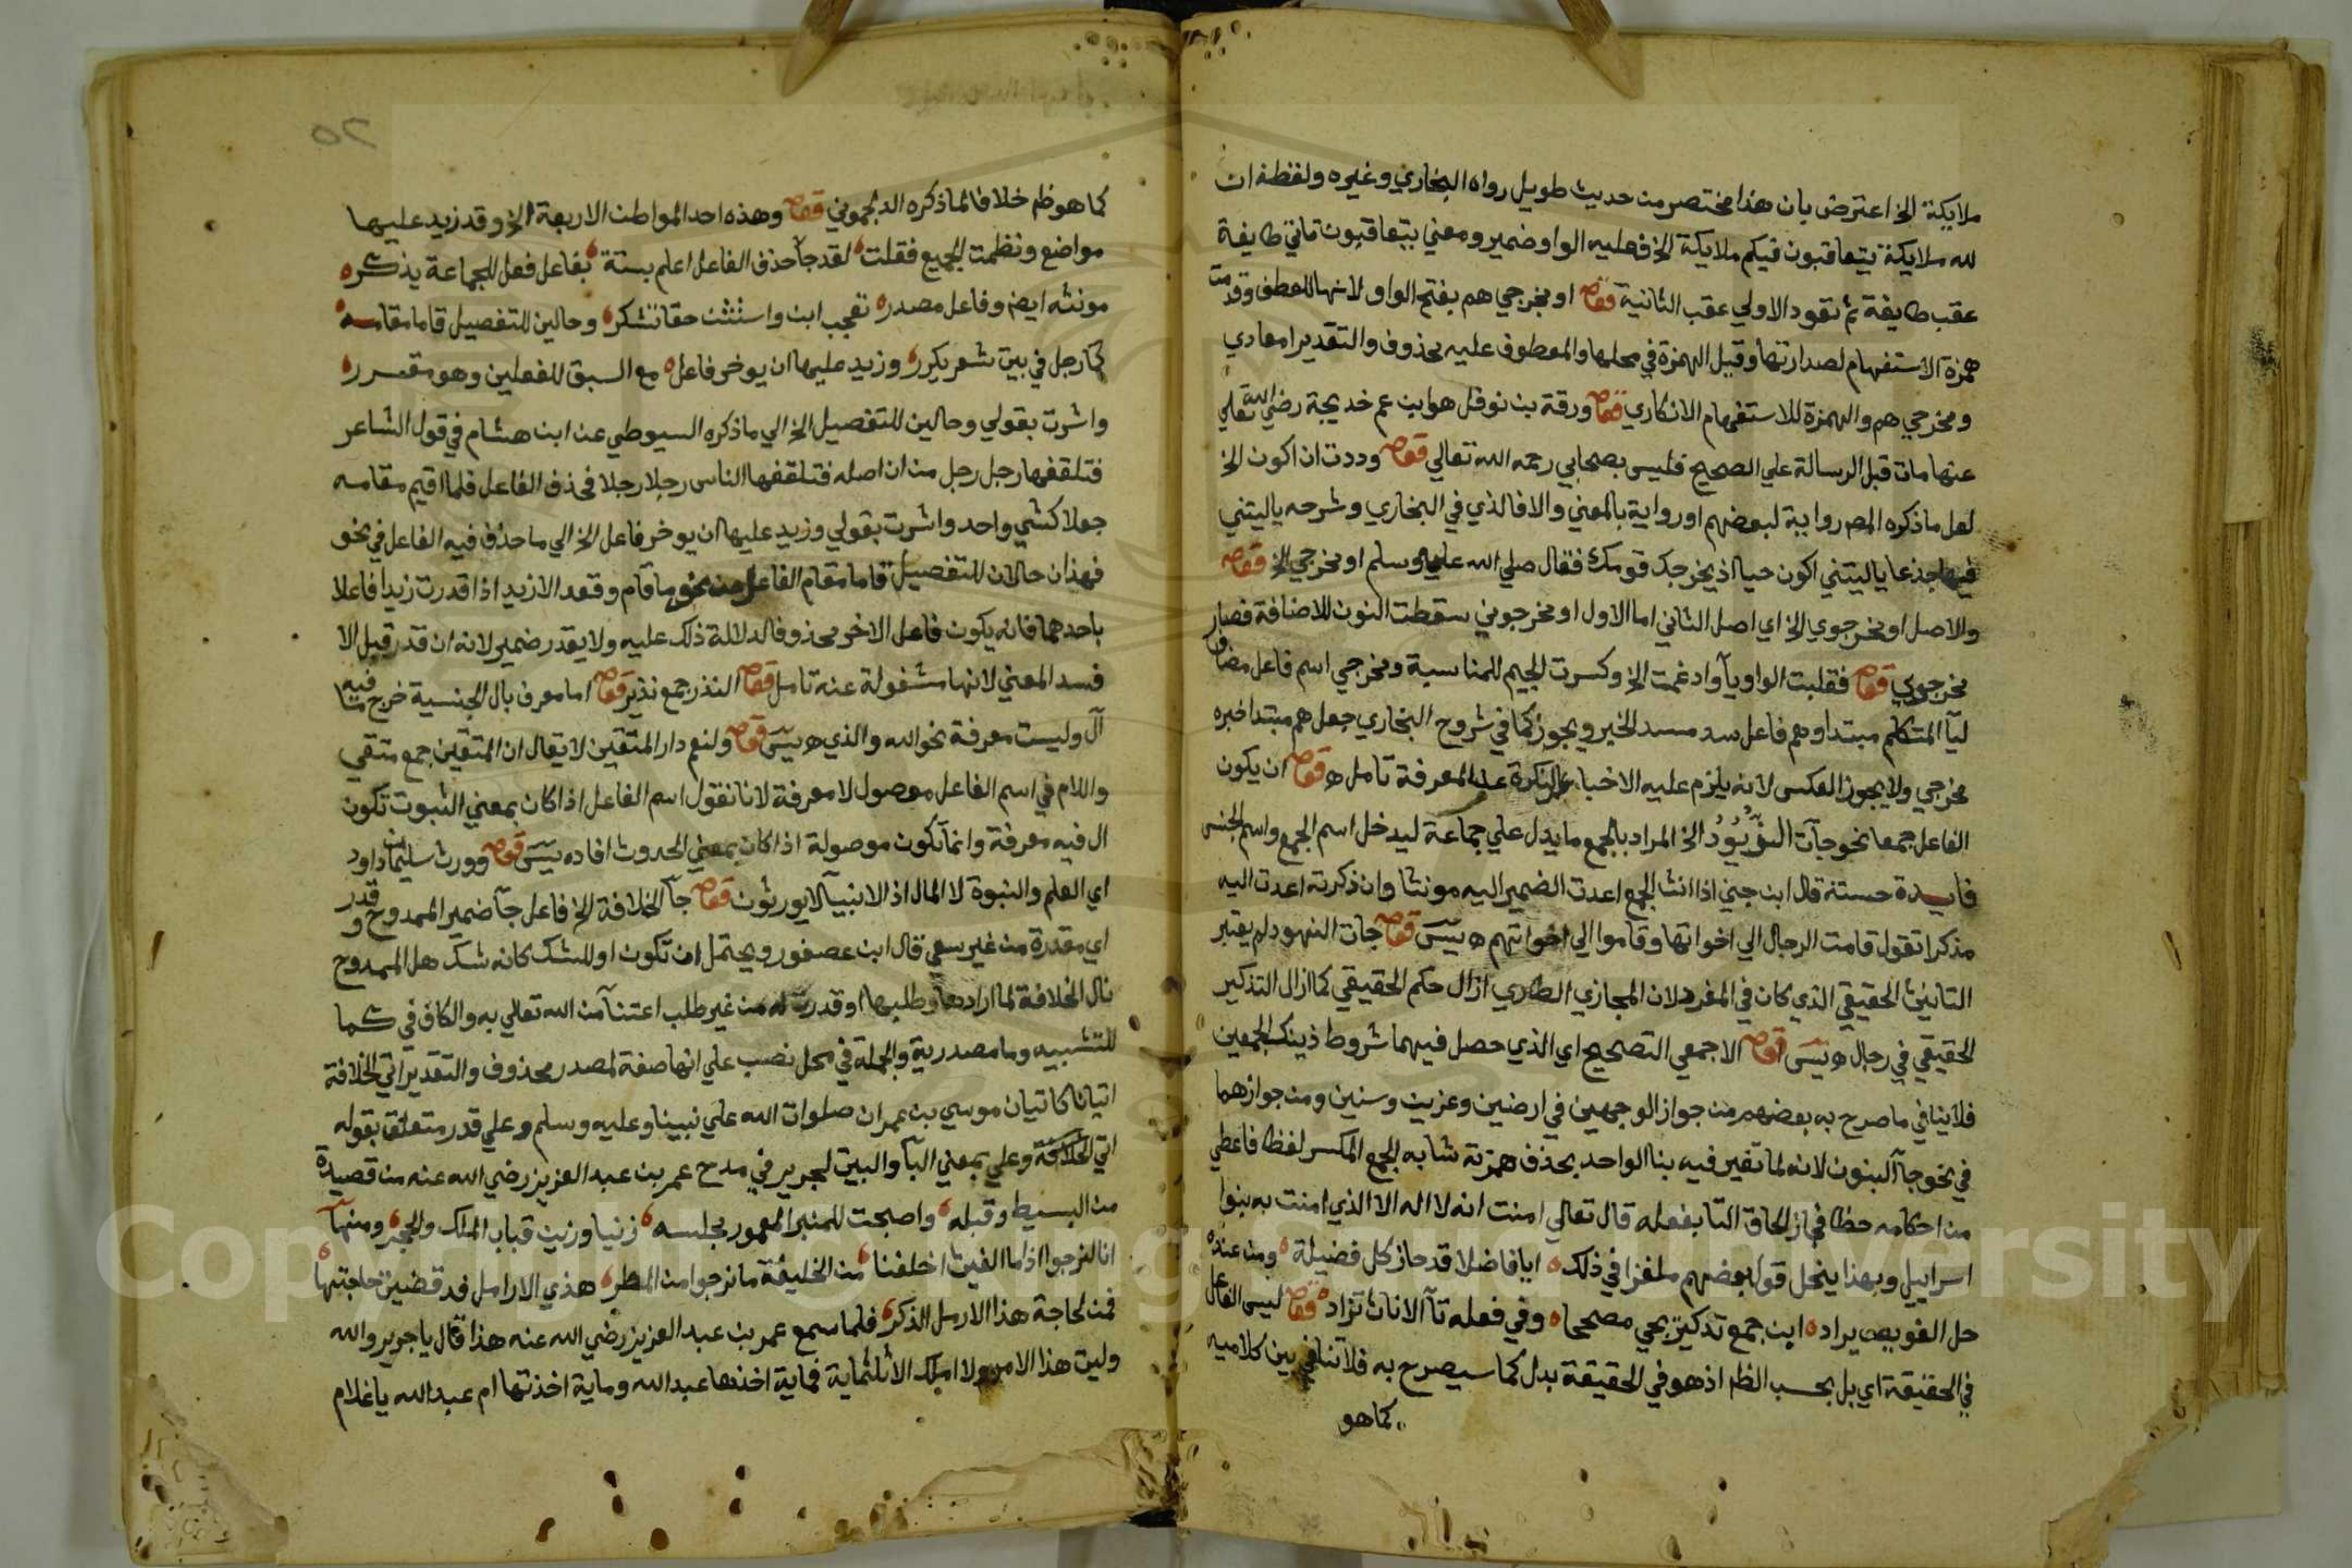 ملايكة الخ اعترض بان هذا مختصر من حديث طويل رواه البخاري وغيره ولفظه ان
لله ملايكة يتعاقبون فيكم ملايكة الخ فعليه الواو ضمير ومعني يتعاقبون تاتي طايفة
عقب طايفة ثم تعود الاولي عقب الثانية قوله او مخرجي هم بفتح الواو لانها للعطف وقدمت
همزة الاستفهام لصدارتها وقيل الهمزة في محلها والمعطوف عليه محذوف والتقدير امعادي
ومخرجي هم والهمزة للاستفهام الانكاري قوله ورقة بن نوفل هو ابن عم خديجة رضي الله تعالي
عنها مات قبل الرسالة علي الصحيح فليس بصحابي رحمه الله تعالي قوله وددت ان اكون الخ
لعل ما ذكره المص رواية لبعضهم او رواية بالمعني والا فالذي في البخاري وشرحه ياليتني
فيها جذعا ياليتني اكون حيا اذ يخرجك قومك فقال صلي الله عليه وسلم او مخرجي الخ قوله
والاصل او مخرجوي الخ اي اصل الثاني اما الاول او مخرجوني سقطت النون للاضافة فصار
مخرجوي قوله فقلبت الواو ياء وادغمت الخ وكسرت الجيم للمناسبة ومخرجي اسم فاعل مضاف
ليآ المتكلم مبتدا وهم فاعل سد مسد الخبر ويجوز كما في شروح البخاري جعل هم مبتدا خبره
مخرجي ولا يجوز العكس لانه يلزم عليه الاخبار بالنكرة عن المعرفة تامل ه قوله ان يكون
الفاعل جمعا نحو جآت الخ المراد بالجمع ما يدل علي جماعة ليدخل اسم الجمع واسم الجنس
فايدة حسنة قال ابن جني اذا انث الجمع اعدت الضمير اليه مونثا وان ذكرته اعدت اليه
مذكرا تقول قامت الرجال الي اخواتها وقاموا الي اخواتهم ه يس قوله جات الهنود لم يعتبر
التانيث الحقيقي الذي كان في المفرد لان المجازي الطاري ازال حكم الحقيقي كما ازال التذكير
الحقيقي في رجال ه يس قوله الا جمعي التصحيح اي الذي حصل فيهما شروط ذينك الجمعين
فلا ينافي ما صرح به بعضهم من جواز الوجهين في ارضين وعزين وسنين ومن جوازهما
في نحو جآ البنون لانه لما تغير فيه بنا الواحد بحذف همزته شابه الجمع المكسر لفظا فاعطي
من احكامه حظا فجاز الحاق التا بفعله قال تعالي امنت انه لا اله الا الذي امنت به بنوا
اسراييل وبهذا ينحل قول بعضهم ملغزا في ذلك ه ايا فاضلا قد حاز كل فضيلة ه ومن عنده
حل العويص يراد ه ابن جمع تذكير يجي مصححا ه وفي فعله تآ الاناث تزاد ه قوله ليس الفاعل
في الحقيقة اي بل بحسب الظ اذ هو في الحقيقة بدل كما سيصرح به فلا تنافي بين كلاميه
كما هو
كما هو ظ خلافا لما ذكره الدلجموني قوله وهذه احد المواطن الاربعة الخ وقد زيد عليها
مواضع ونظمت الجميع فقلت لقد جآ حذف الفاعل اعلم بستة بفاعل فعل للجماعة يذكره
مونثه ايض وفاعل مصدره تعجب ابن واستثن حقا تشكر وحالين للتفصيل قاما مقامه
كآ رجل في بيت شعر يكرر وزيد عليها ان يوخر فاعل ه مع السبق للفعلين وهو مقرر ه
واشرت بقولي وحالين للتفصيل الخ الي ما ذكره السيوطي عن ابن هشام في قول الشاعر
فتلقفها رجل رجل من ان اصله فتلقفها الناس رجلا رجلا فحذف الفاعل فلما اقيم مقامه
جعلا كشي واحد واشرت بقولي وزيد عليها ان يوخر فاعل الخ الي ما حذف فيه الفاعل في نحو
فهذان حالان للتفصيل قاما مقام الفاعل من نحو ما قام وقعد الا زيد اذا قدرت زيدا فاعلا
باحدهما فانه يكون فاعل الاخر محذوفا لدلالة ذلك عليه ولا يقدر ضمير لانه ان قدر قبل الا
فسد المعني لانها مشغولة عنه تامل قوله النذر جمع نذير قوله اما معرف بال الجنسية خرج ما فيه
آل وليست معرفة نحو الله والذي ه يس قوله ولنعم دار المتقين لا يقال ان المتقين جمع متقي
واللام في اسم الفاعل موصول لا معرفة لانا نقول اسم الفاعل اذا كان بمعني الثبوت تكون
ال فيه معرفة وانما تكون موصولة اذا كان بمعني الحدوث افاده يس قوله وورث سليمان داود
اي العلم والنبوة لا المال اذ الانبيآ لا يورثون قوله جآ الخلافة الخ فاعل جآ ضمير الممدوح وقدر
اي مقدرة من غير سعي قال ابن عصفور ويحتمل ان تكون او للشك كانه شك هل الممدوح
نال الخلافة لما ارادها وطلبها او قدرت له من غير طلب اعتنآ من الله تعالي به والكاف في كما
للتشبيه وما مصدرية والجملة في محل نصب علي انها صفة لمصدر محذوف والتقدير اتي الخلافة
اتيانا كاتيان موسي بن عمران صلوات الله علي نبينا وعليه وسلم وعلي قدر متعلق بقوله
اتي الخلافة وعلي بمعني البآ والبيت لجرير في مدح عمر بن عبد العزيز رضي الله عنه من قصيدة
من البسيط وقبله واصبحت للمنبر المعمور مجلسه زنيا وزين قباب الملك والحجر ومنها
انا لنرجوا اذا ما الغيث اخلفنا من الخليفة ما نرجوا من المطر هذي الارامل قد قضيت حاجتها
فمن لحاجة هذا الارمل الذكر فلما سمع عمر بن عبد العزيز رضي الله عنه هذا قال يا جرير والله
وليت هذا الامر ولا املك الا ثلثماية فماية اخذها عبد الله وماية اخذتها ام عبد الله يا غلام
Copyright © King Saud University